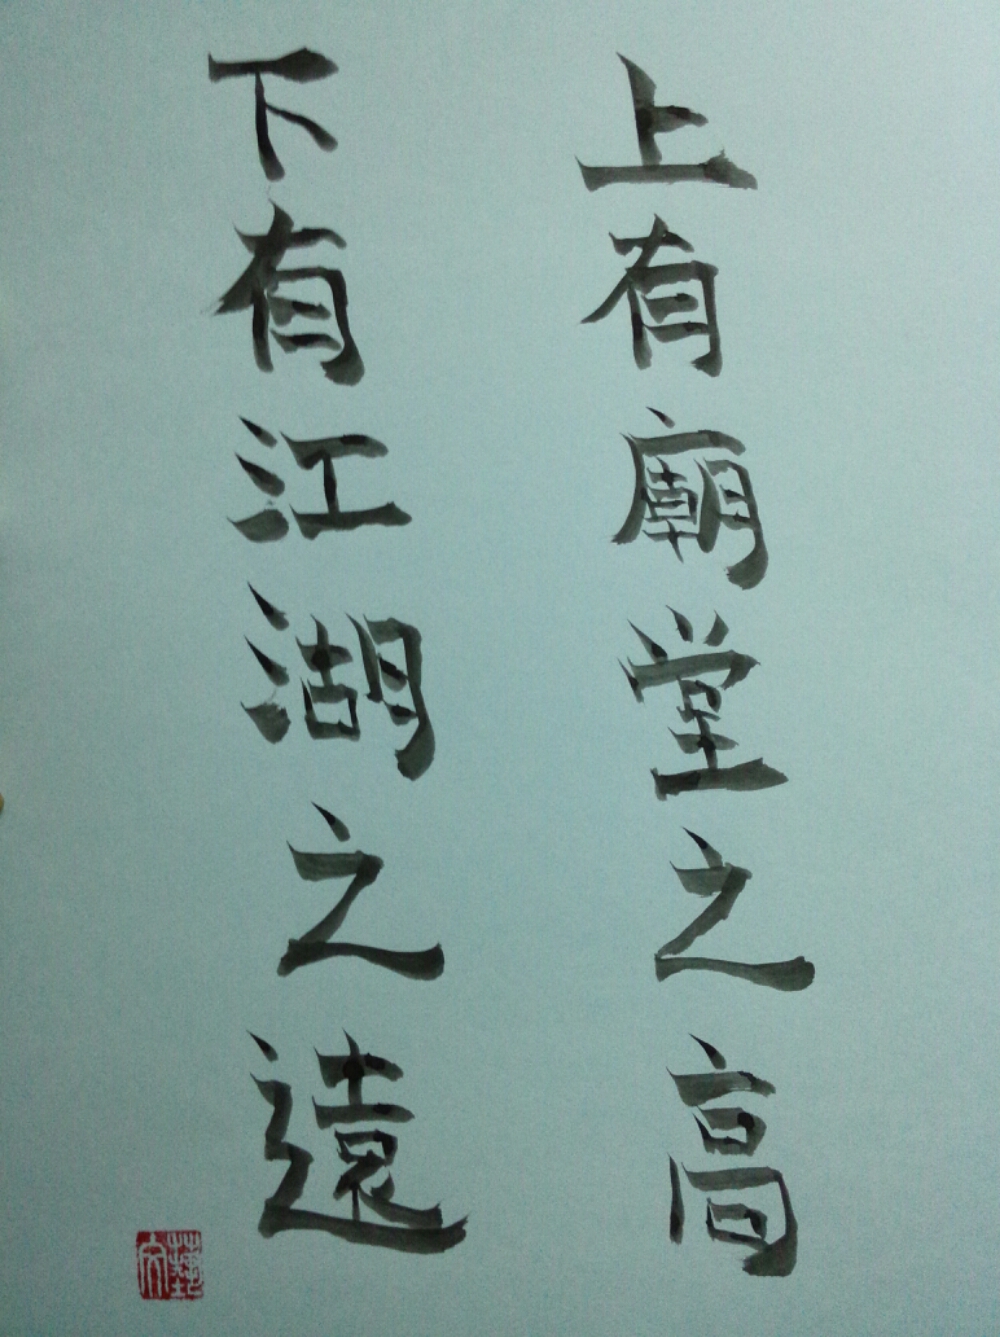 上有廟堂之高
下有江湖之遠